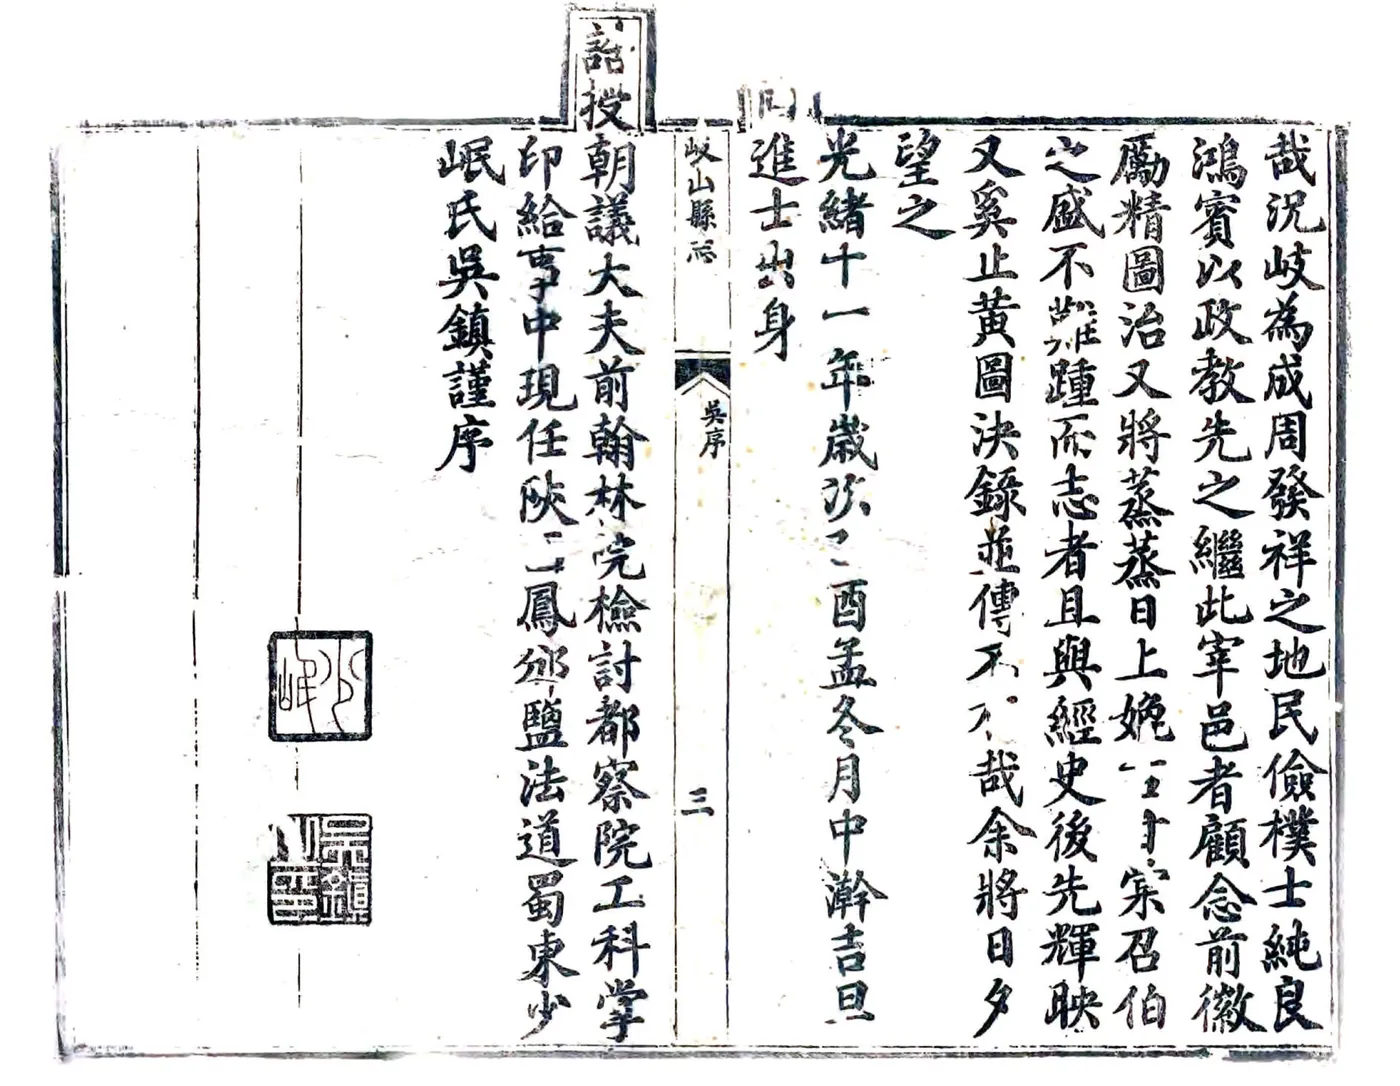 哉況岐為成周發祥之地民儉樸士純良
鴻賓以政教先之繼此宰邑者顧念前徽
勵精圖治又將蒸蒸日上媲召伯
之盛不難踵而志者且與經史後先輝映
又奚止黃圖決錄並傳不哉余將日夕
望之
光緒十一年歲次乙酉孟冬月中澣吉旦
進士出身
岐山縣志
吳序
三
誥授朝議大夫前翰林院檢討都察院工科掌
印給事中現任陝西鳳邠鹽法道蜀東少
岷氏吳鎮謹序
少岷
吳鎮之印